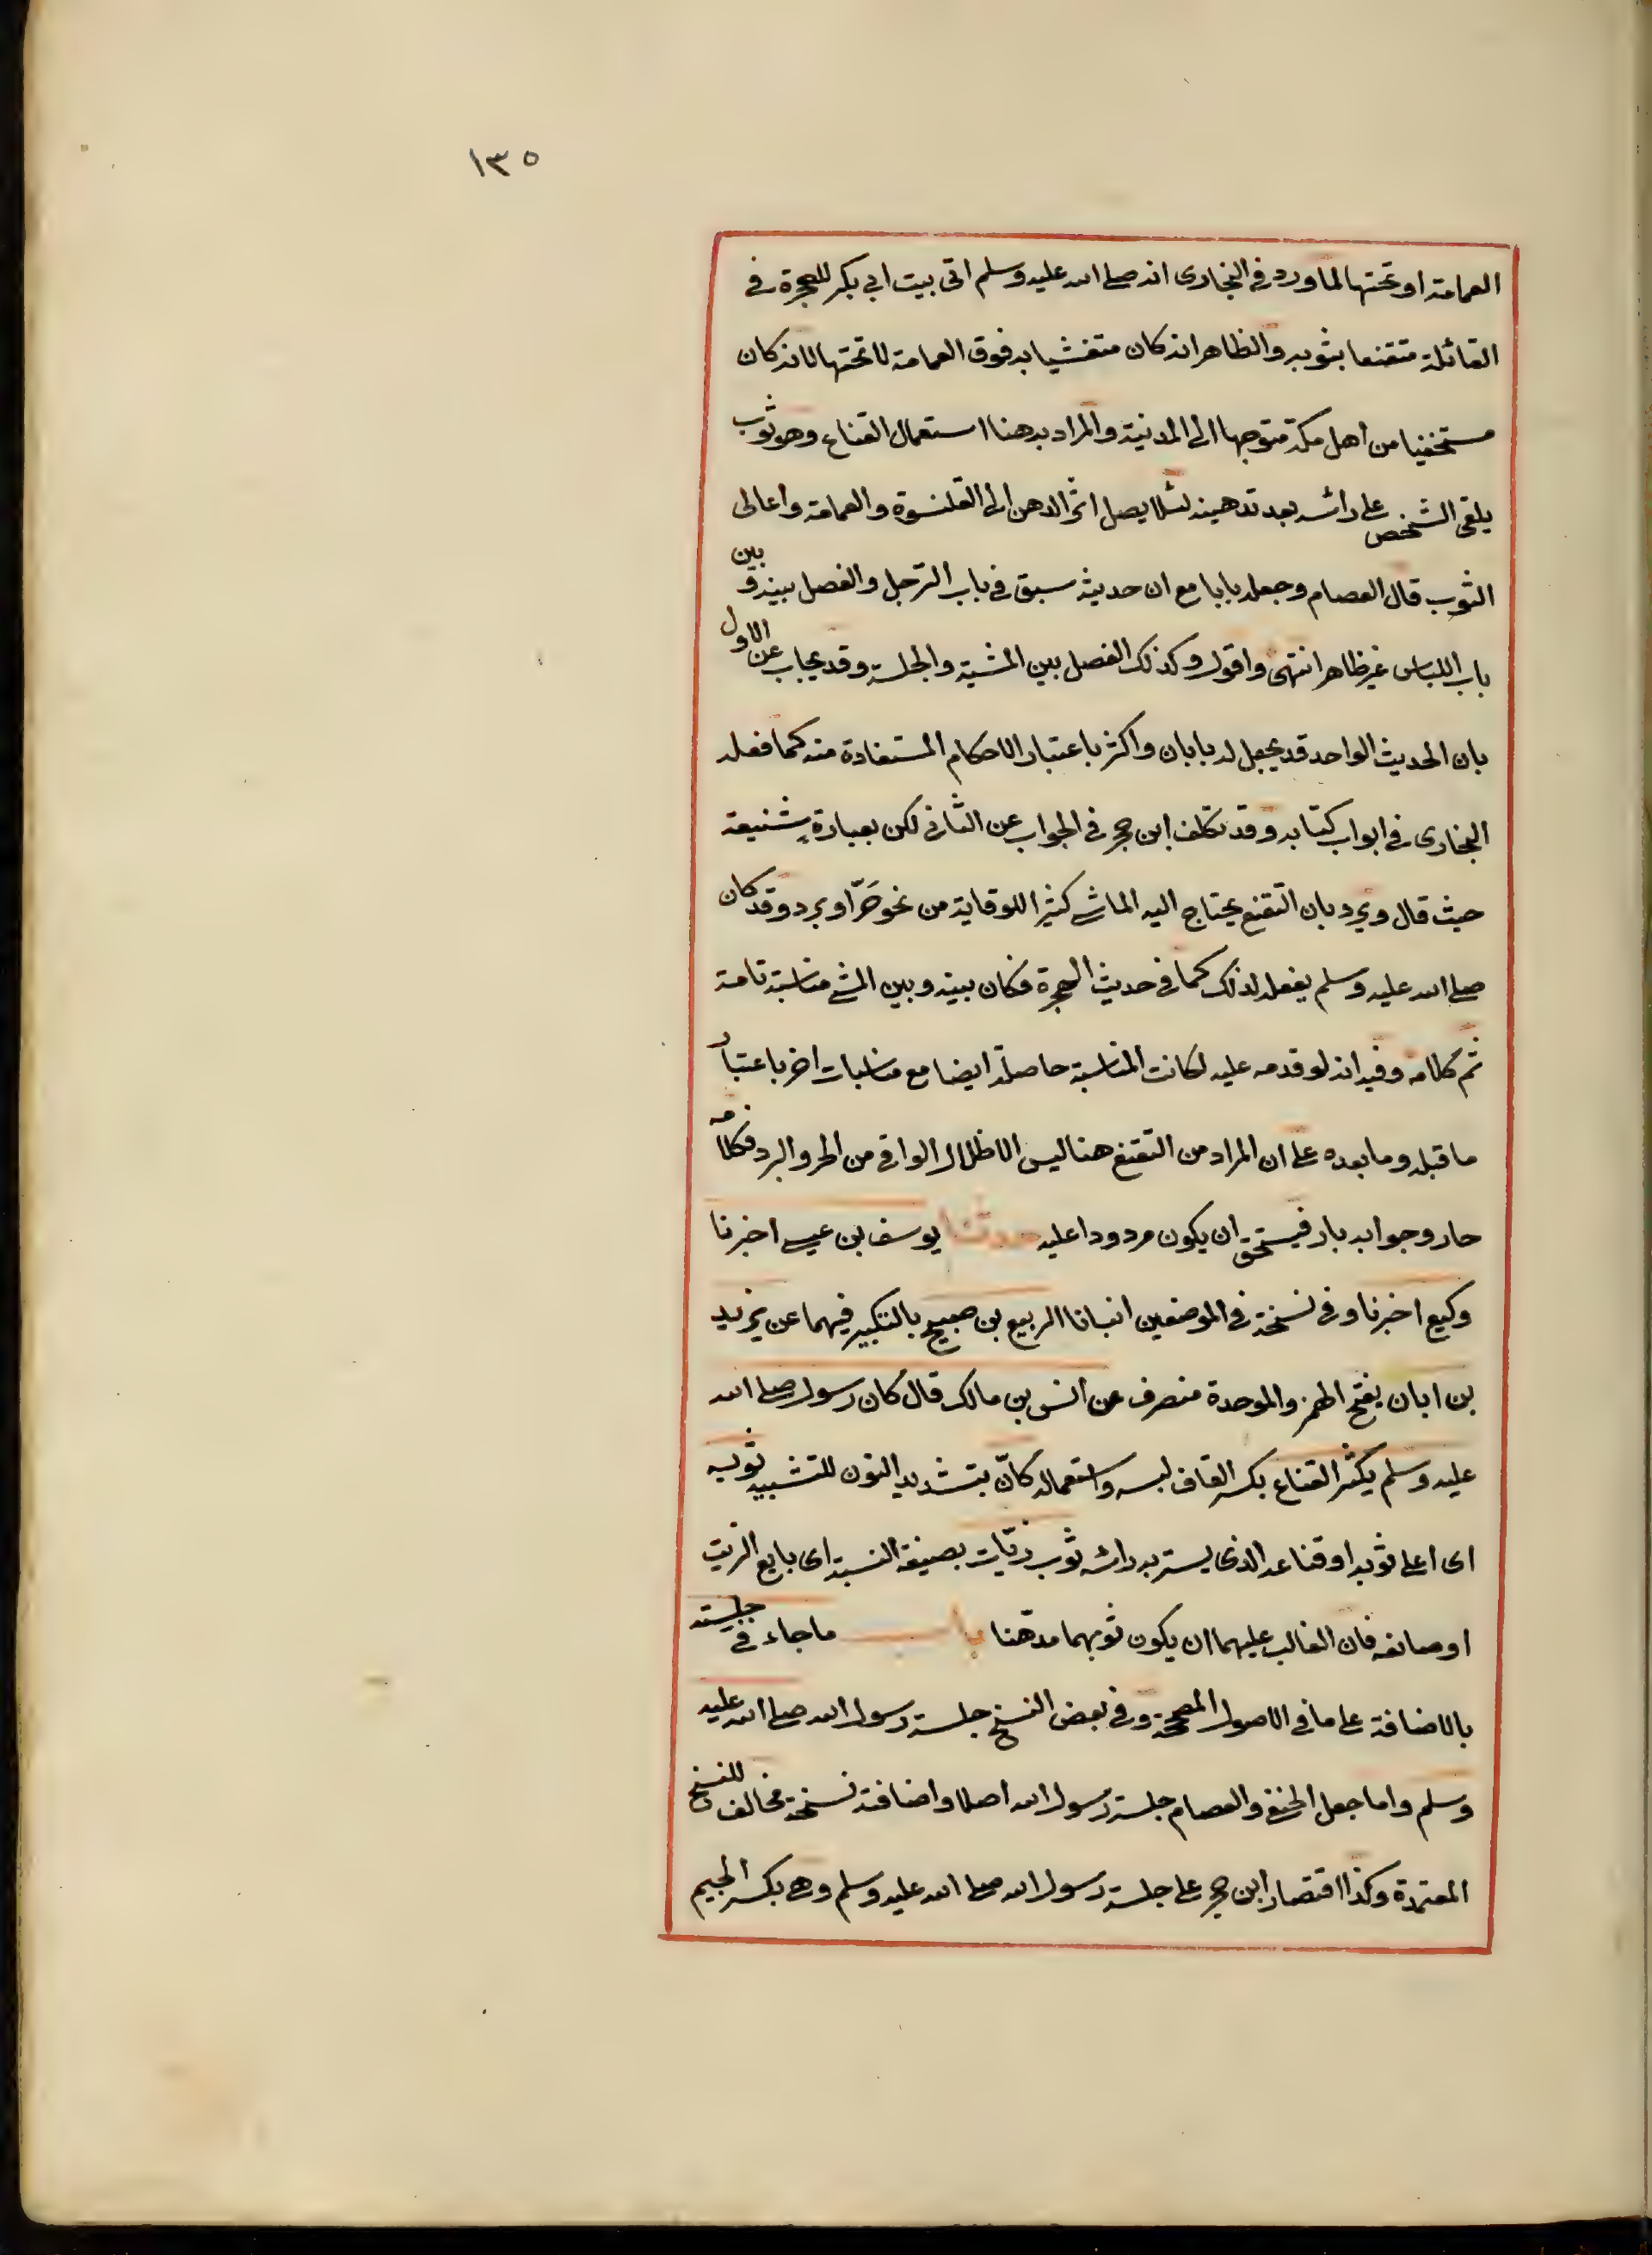 ١٣٥
العمامة او تحتها لما ورد في البخارى انه صلى الله عليه وسلم اتى بيت ابي بكر للهجرة في
القائلة متقنعا بثوبه والظاهر انه كان متغشيا به فوق العمامة لا تحتها لانه كان
مستخفيا من اهل مكة متوجها الى المدينة والمراد به هنا استعمال القناع وهو ثوب
يلقى الشخص على راسه بعد تدهينه لئلا يصل اثر الدهن الى القلنسوة والعمامة واعالى
الثوب قال العصام وجعله بابا مع ان حديثه سبق في باب الترجل والفصل بينه و بين
باب اللباس غير ظاهر انتهى واقول وكذلك الفصل بين المشية والجلسة وقد يجاب عن الاول
بان الحديث الواحد قد يجعل له بابان واكثر باعتبار الاحكام المستفادة منه كما فعله
البخارى في ابواب كتابه وقد تكلف ابن حجر في الجواب عن الثاني لكن بعبارة شنيعة
حيث قال ويرد بان التقنع يحتاج اليه الماشى كثيرا للوقاية من نحو حَرّ او برد وقد كان
صلى الله عليه وسلم يفعله لذلك كما في حديث الهجرة فكان بينه وبين المشي مناسبة تامة
ثم كلامه وفيه انه لو قدمه عليه لكانت المناسبة حاصلة ايضا مع مناسبات اخر باعتبار
ما قبله وما بعده على ان المراد من التقنع هنا ليس الاظلال الواقى من الحر والبرد فكلامه
حار وجوابه بار فيستحق ان يكون مردودا عليه حدثنا يوسف بن عيسى اخبرنا
وكيع اخبرنا وفي نسخة في الموضعين انبانا الربيع بن صبيح بالتكبير فيهما عن يزيد
بن ابان بفتح الهمز والموحدة منصرف عن انس بن مالك قال كان رسول صلى الله
عليه وسلم يكثر القناع بكسر القاف لبسه واستعماله كانّ بتشديد النون للتشبيه ثوبه
اى اعلى ثوبه او قناعه الذى يستر به راسه ثوب زيّات بصيغة النسبة اى بايع الزيت
او صانعه فان الغالب عليهما ان يكون ثوبهما مدهّنا باب ما جاء في جلسته
بالاضافة على ما في الاصول المصححة وفي بعض النسخ جلسة رسول الله صلى الله عليه
وسلم واما جعل الحنفى والعصام جلسة رسول الله اصلا واضافته نسخة مخالف للنسخ
المعتمدة وكذا اقتصار ابن حجر على جلسة رسول الله صلى الله عليه وسلم وهى بكسر الجيم